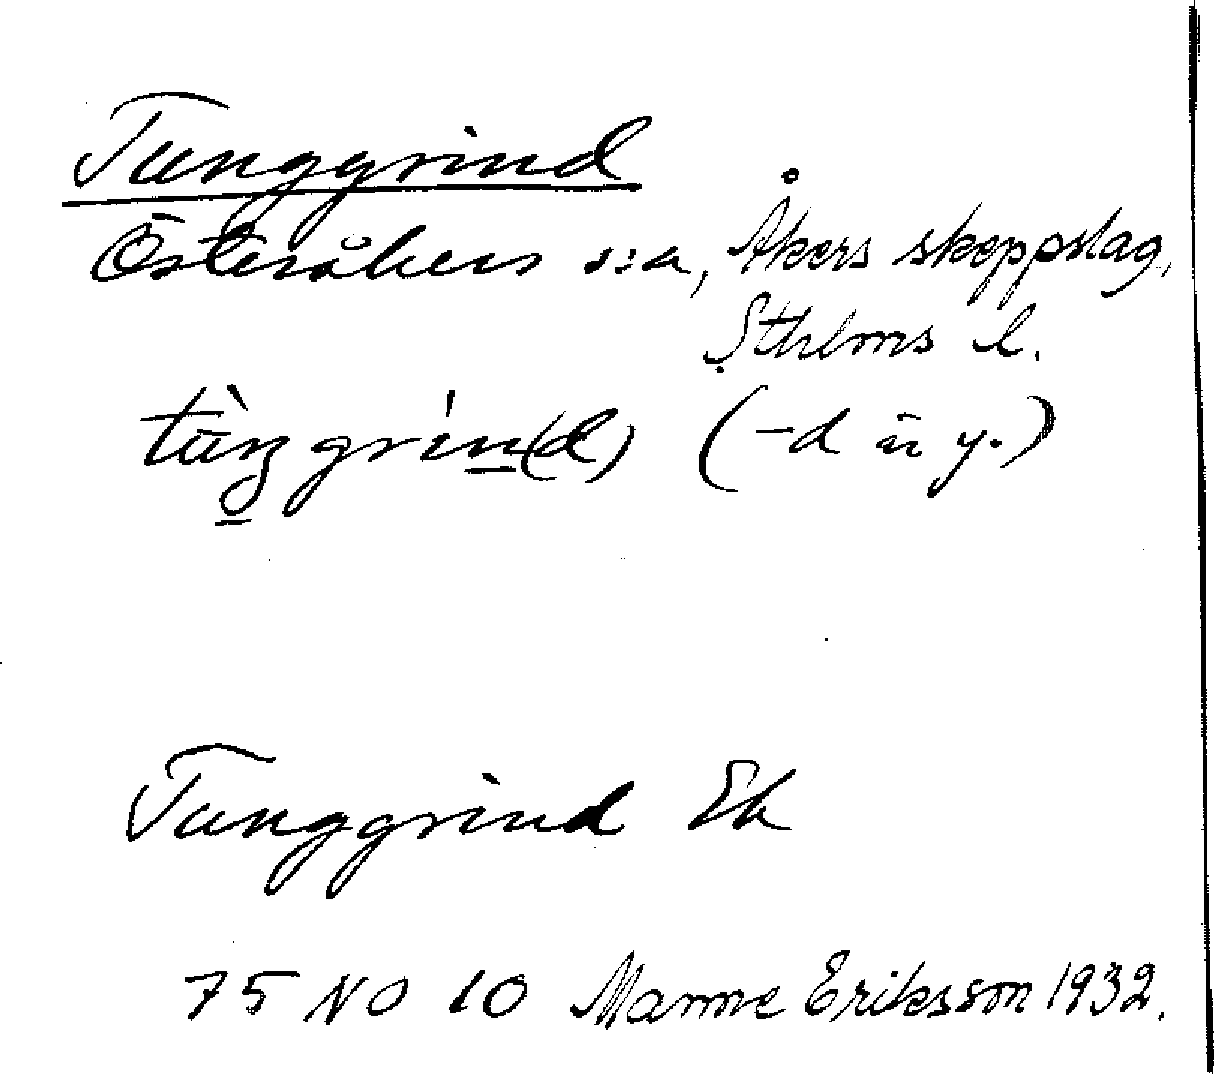 Tunggrind
Österåkers sn, Åkers skeppslag,
Sthlms l.
tùŋgrín(d) (-d är y.)
Tunggrind Ek
75 NO 10 Manne Eriksson 1932.